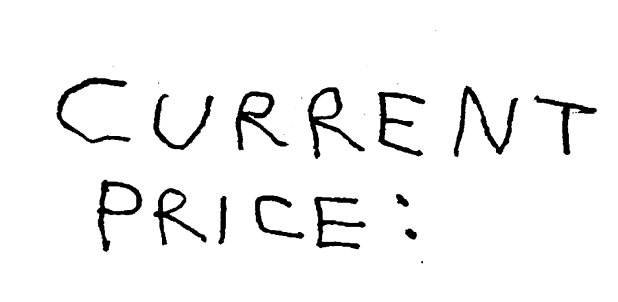 CURRENT
PRICE: